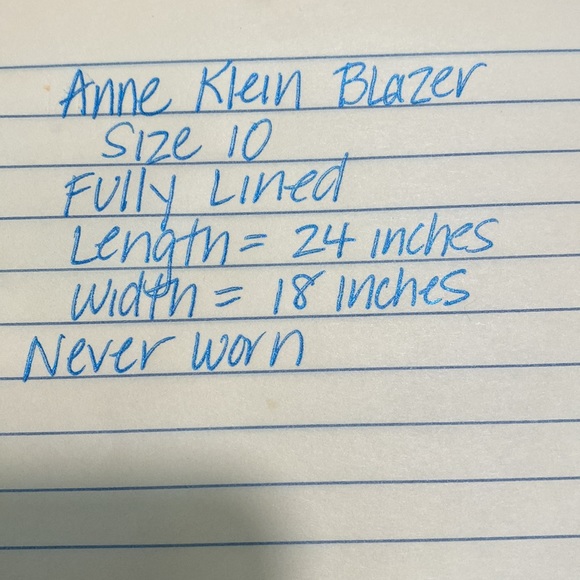 Anne Klein Blazer
Size 10
Fully Lined
Length = 24 inches
Width = 18 inches
Never worn